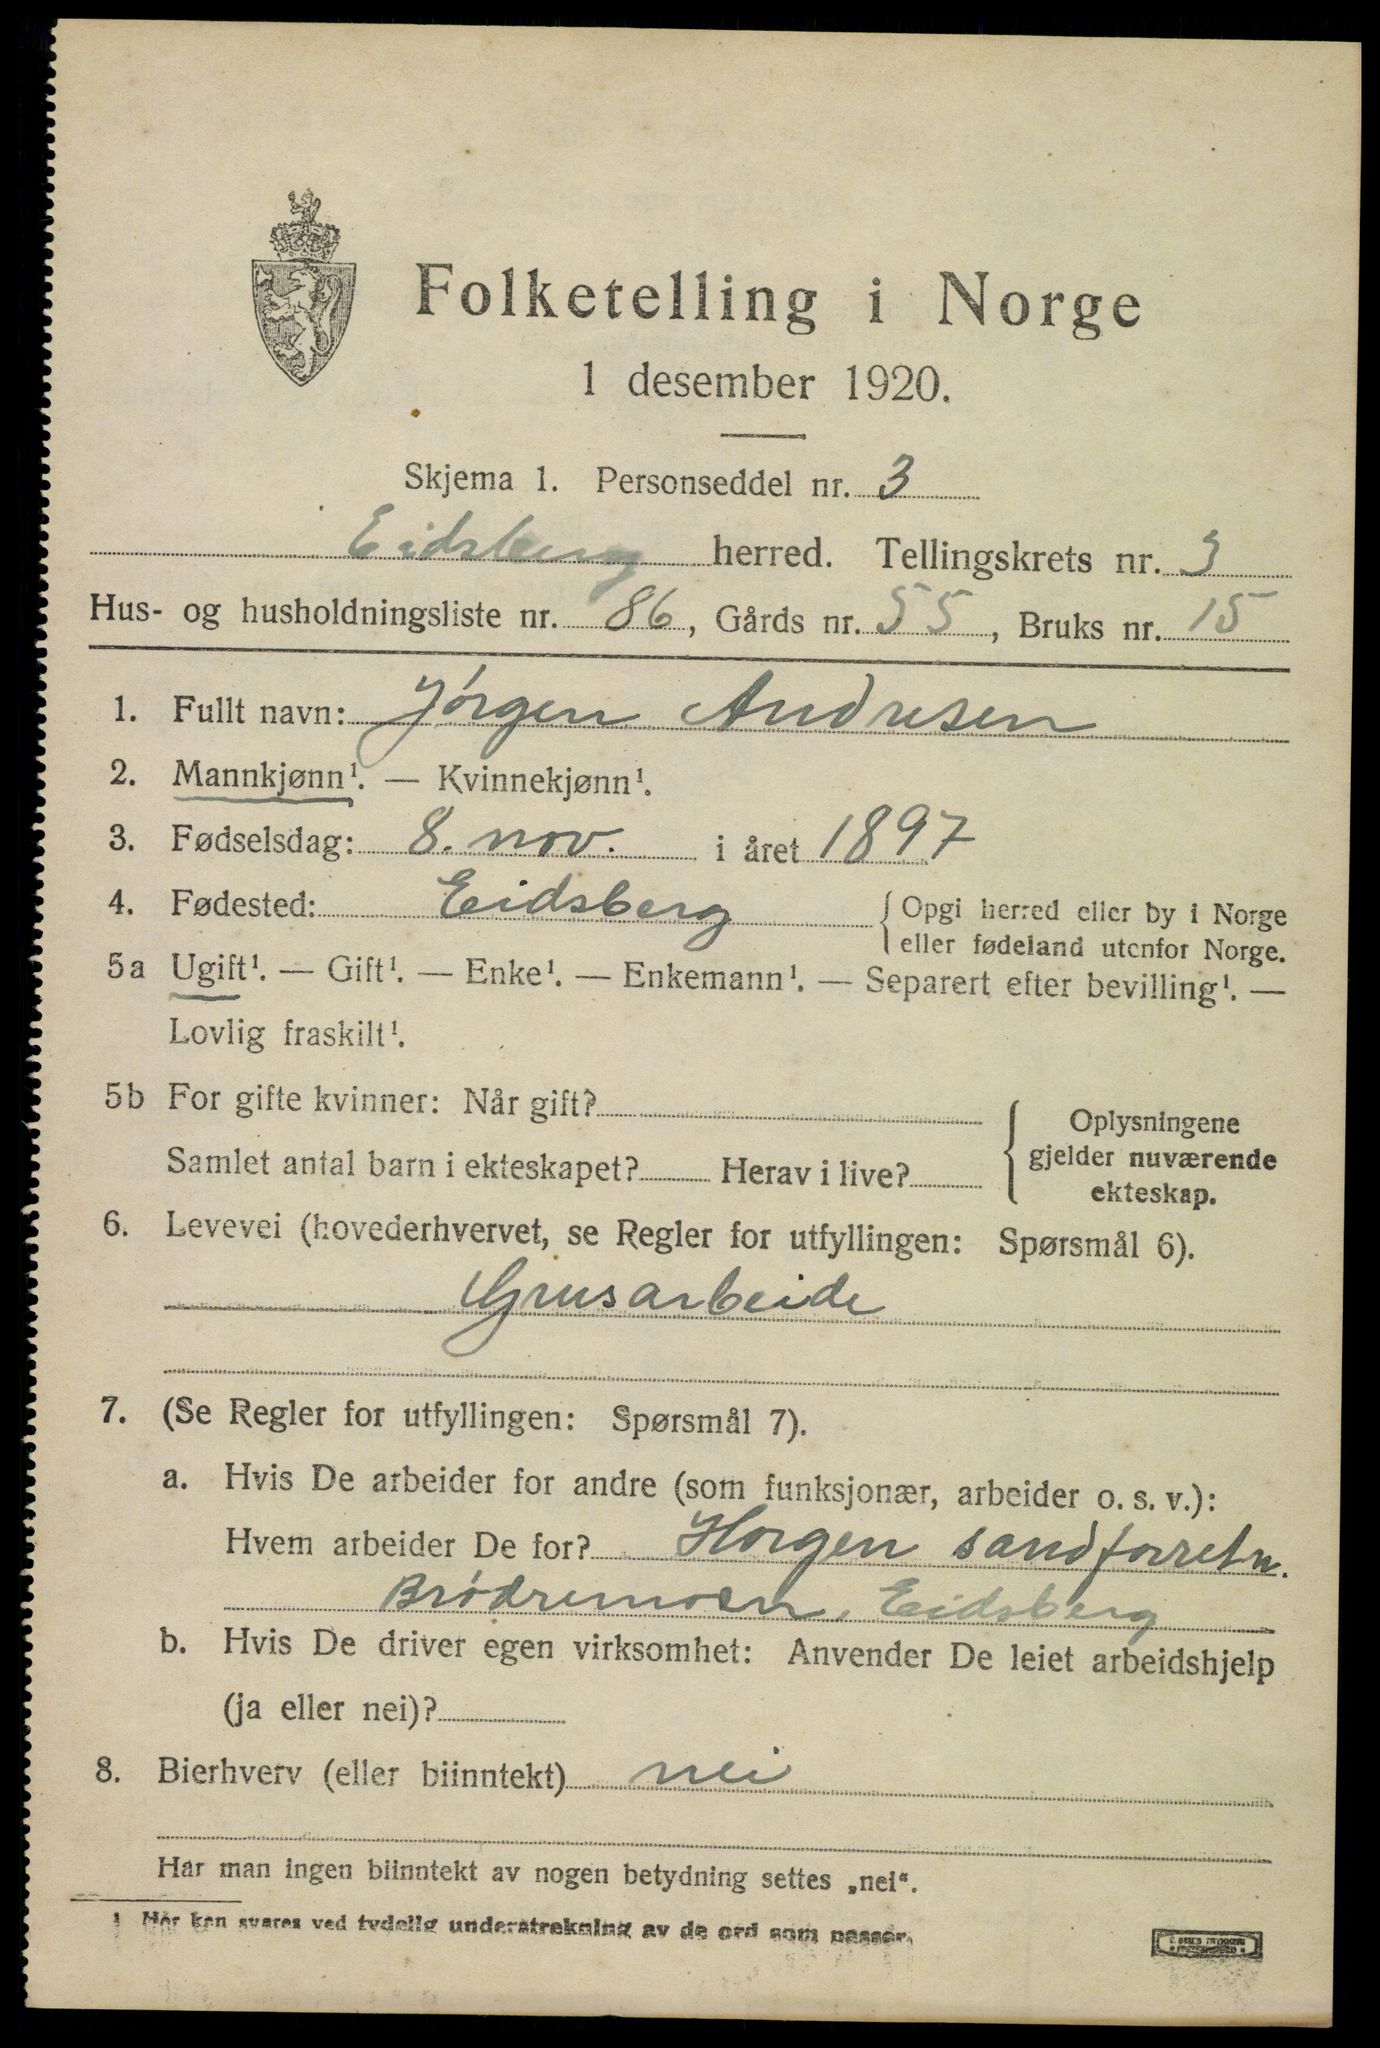 Folketelling i Norge
1 desember 1920.
Skjema 1. Personseddel nr. 3
Eidsberg herred. Tellingskrets nr. 3
Hus- og husholdningsliste nr. 86, Gårds nr. 55, Bruks nr. 15
1. Fullt navn: Jørgen Andresen
2. Mannkjønn¹. — Kvinnekjønn¹.
3. Fødselsdag: 8. nov. i året 1897
4. Fødested: Eidsberg { Opgi herred eller by i Norge
eller fødeland utenfor Norge.
5a Ugift¹. — Gift¹. — Enke¹. — Enkemann¹. — Separert efter bevilling¹. —
Lovlig fraskilt¹.
5b For gifte kvinner: Når gift? { Oplysningene
gjelder nuværende
Samlet antal barn i ekteskapet? Herav i live?
ekteskap.
6. Levevei (hovederhvervet, se Regler for utfyllingen: Spørsmål 6).
Grusarbeide
7. (Se Regler for utfyllingen: Spørsmål 7).
a. Hvis De arbeider for andre (som funksjonær, arbeider o. s. v.):
Hvem arbeider De for? Horgen sandforretn.
Brødremoen, Eidsberg
b. Hvis De driver egen virksomhet: Anvender De leiet arbeidshjelp
(ja eller nei)?
8. Bierhverv (eller biinntekt) nei
Har man ingen biinntekt av nogen betydning settes „nei“.
¹ Her kan svares ved tydelig understrekning av de ord som passer.